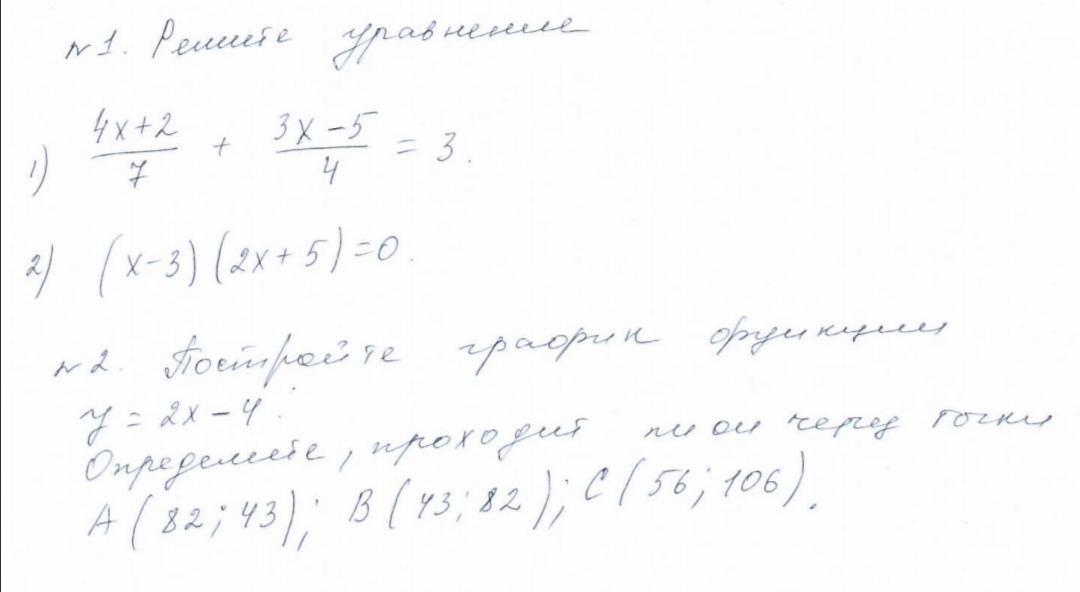 №1. Решите уравнение
1) (4x+2)/7 + (3x-5)/4 = 3.
2) (x-3)(2x+5)=0.
№2. Постройте график функции
y = 2x-4.
Определите, проходит ли он через точки
A(82;43); B(43;82); C(56;106).